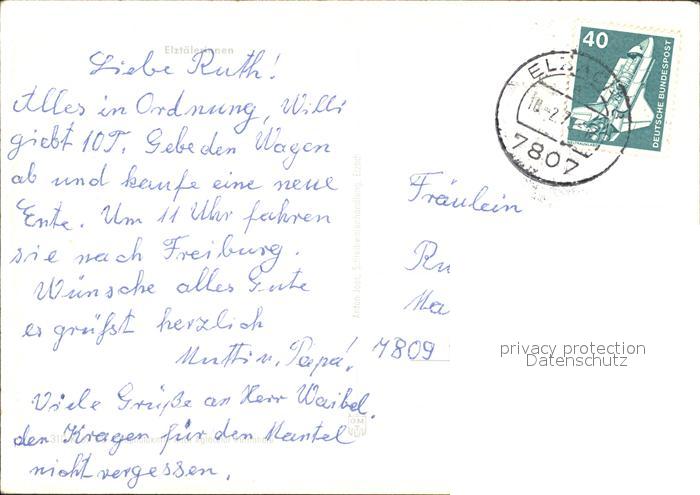 Elztälerinnen
Liebe Ruth!
Alles in Ordnung, Willi
giebt 10T. Gebe den Wagen
ab und kaufe eine neue
Ente. Um 11 Uhr fahren
sie nach Freiburg.
Wünsche alles Gute
es grüßt herzlich
Mutti u. Papa!
Viele Grüße an Herr Waibel.
den Kragen für den Mantel
nicht vergessen.
40
DEUTSCHE BUNDESPOST
7807
Fräulein
Ru
Ma
7809
privacy protection
Datenschutz